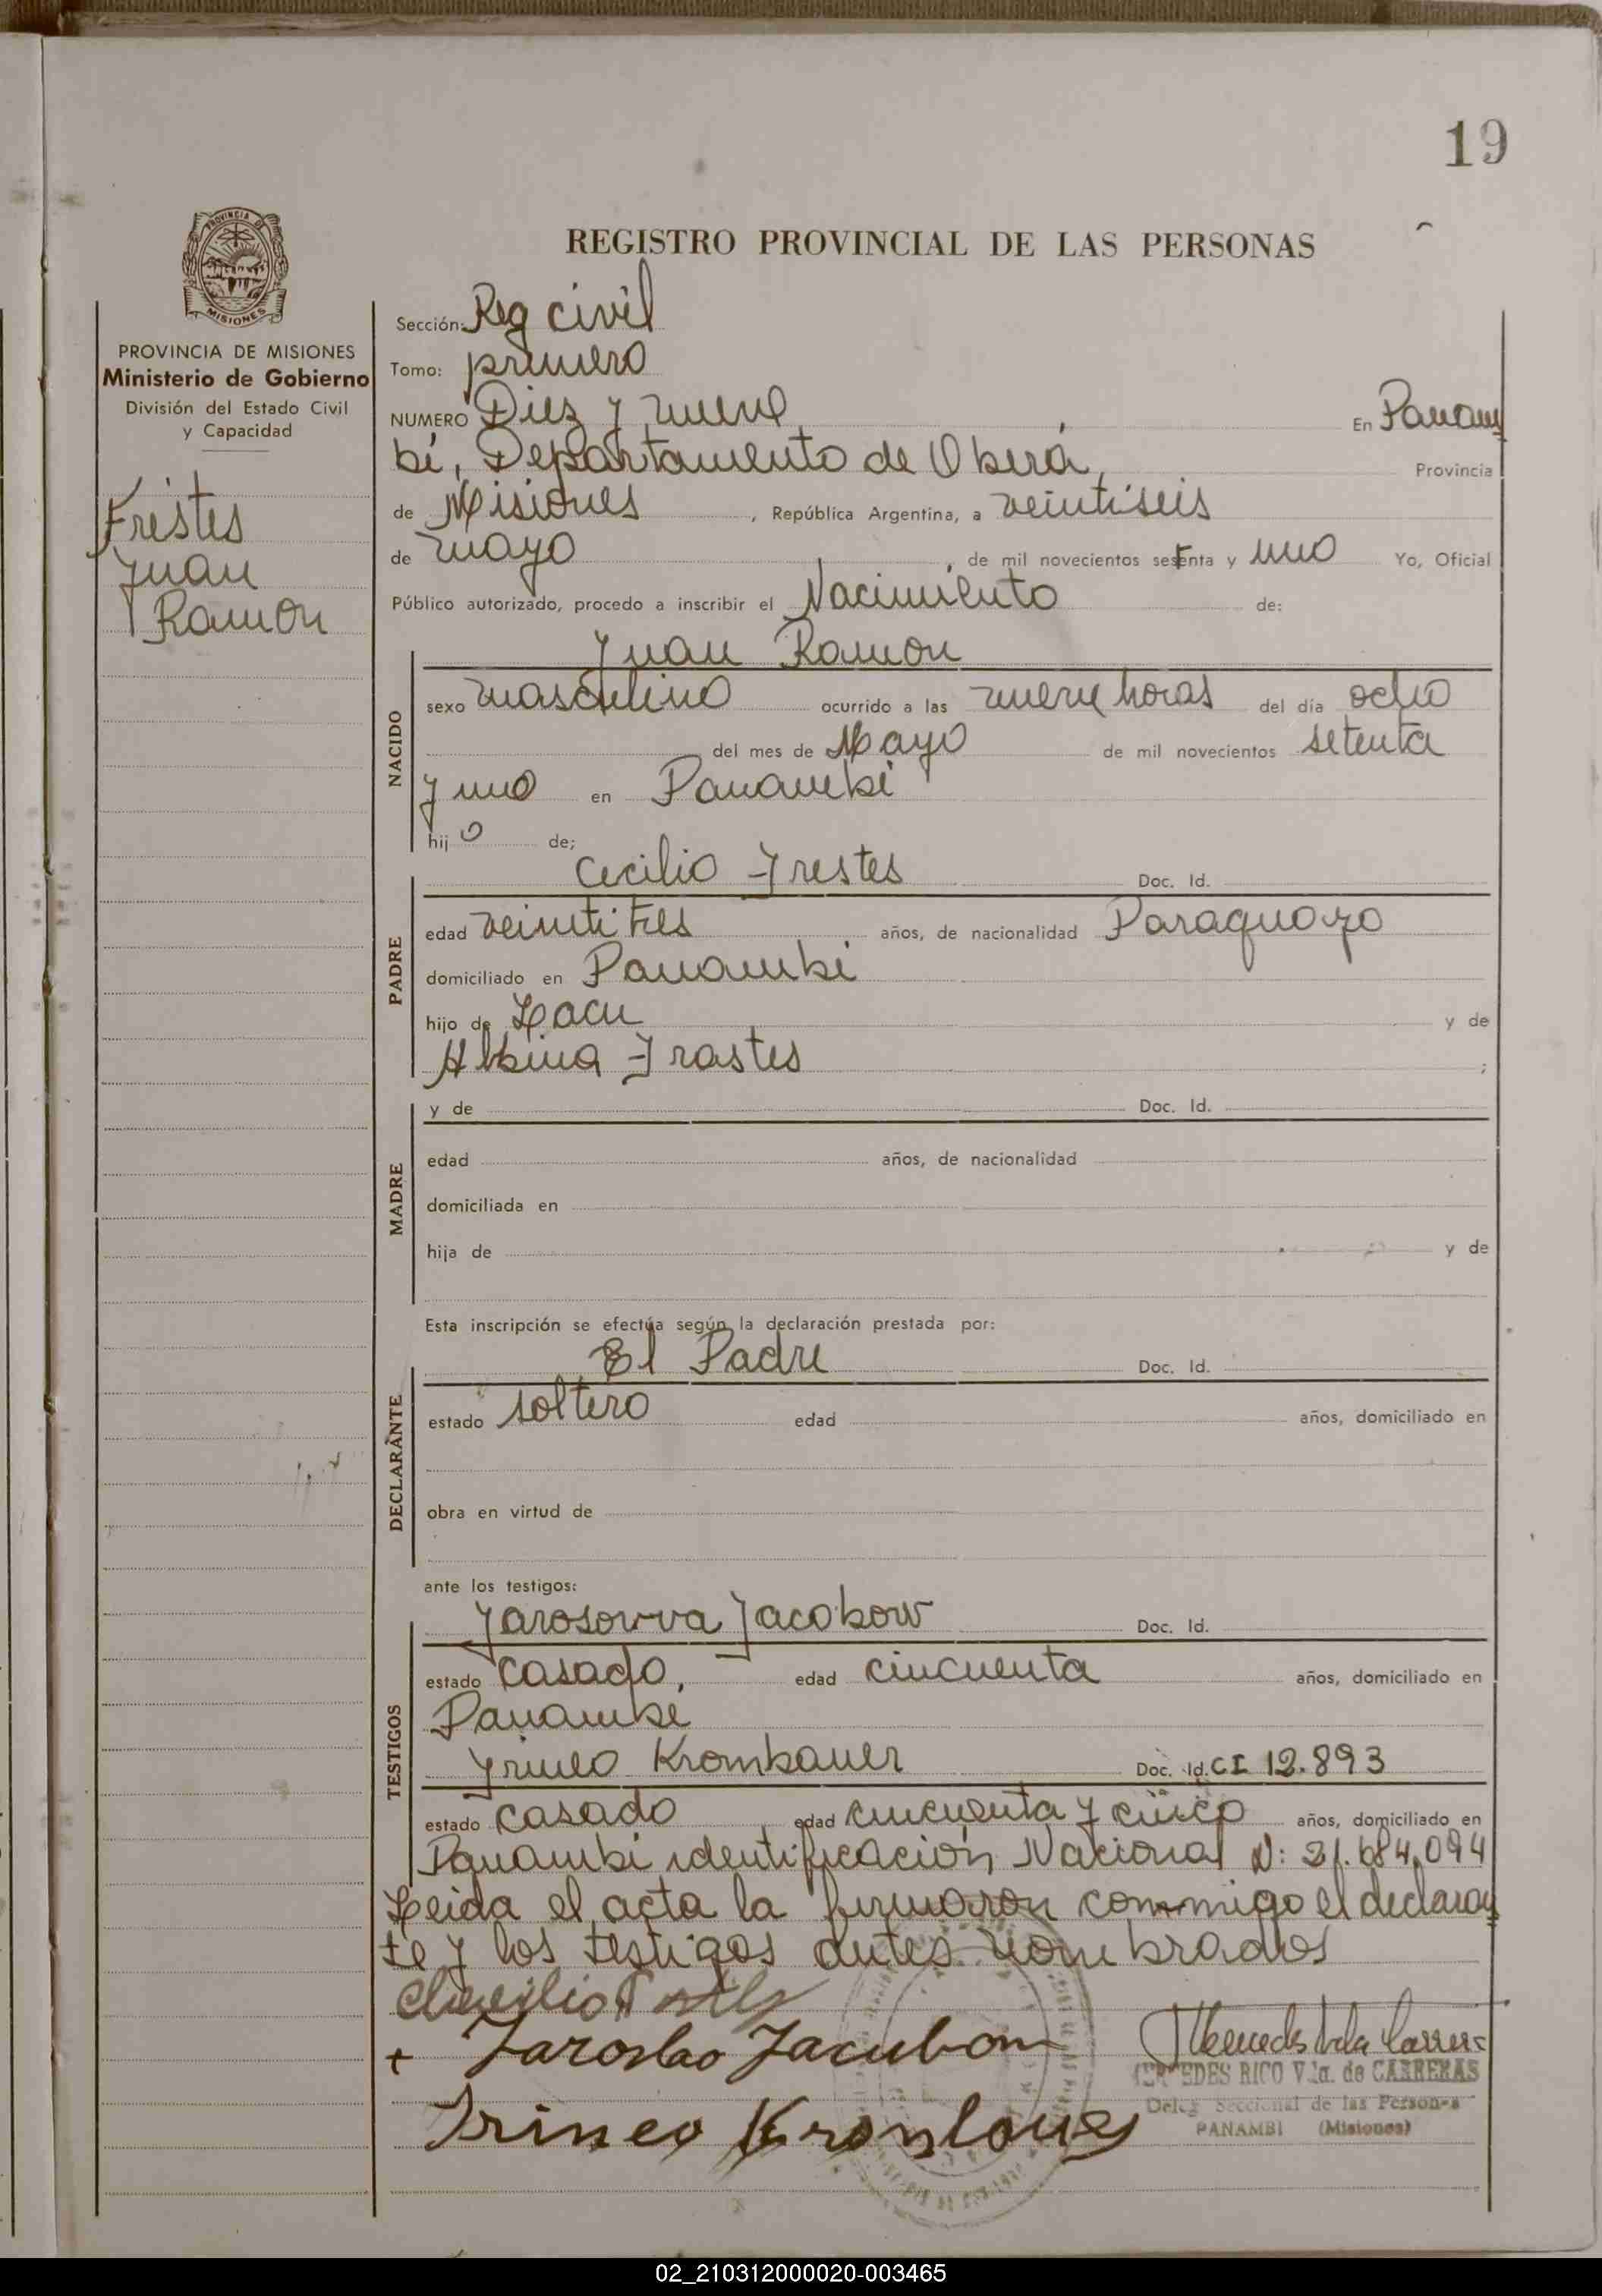 19
REGISTRO PROVINCIAL DE LAS PERSONAS
PROVINCIA DE MISIONES
Ministerio de Gobierno
División del Estado Civil
y Capacidad
Frestes
Juan
Ramon
Sección: Reg civil
Tomo: primero
NUMERO Diez y nueve En Panam
bí, Departamento de Oberá, Provincia
de Misiones, República Argentina, a veintiseis
de mayo, de mil novecientos setenta y uno Yo, Oficial
Público autorizado, procedo a inscribir el Nacimiento de:
NACIDO
Juan Ramon
sexo masculino ocurrido a las nueve horas del día ocho
del mes de Mayo de mil novecientos setenta
y uno en Panambi
hijo de;
PADRE
Cecilio Frestes Doc. Id.
edad veinti tres años, de nacionalidad Paraguayo
domiciliado en Panambi
hijo de y de
Albina Frastes ;
MADRE
y de Doc. Id.
edad años, de nacionalidad
domiciliada en
hija de y de
Esta inscripción se efectúa según la declaración prestada por:
DECLARANTE
El Padre Doc. Id.
estado soltero edad años, domiciliado en
obra en virtud de
ante los testigos:
TESTIGOS
Jarosowva Jacobow Doc. Id.
estado casado, edad cincuenta años, domiciliado en
Panambi
Yrineo Krombauer Doc. Id. CI 12.893
estado casado, edad cincuenta y cinco años, domiciliado en
Panambi identificación Nacional N: 21.684.094
Leida el acta la firmaron conmigo el declaran
te y los testigos antes nombrados
+ Jaroslao Jacubow
Irineo
MERCEDES RICO Vda. de CARRERAS
Deleg Seccional de las Personas
PANAMBI (Misiones)
02_210312000020-003465